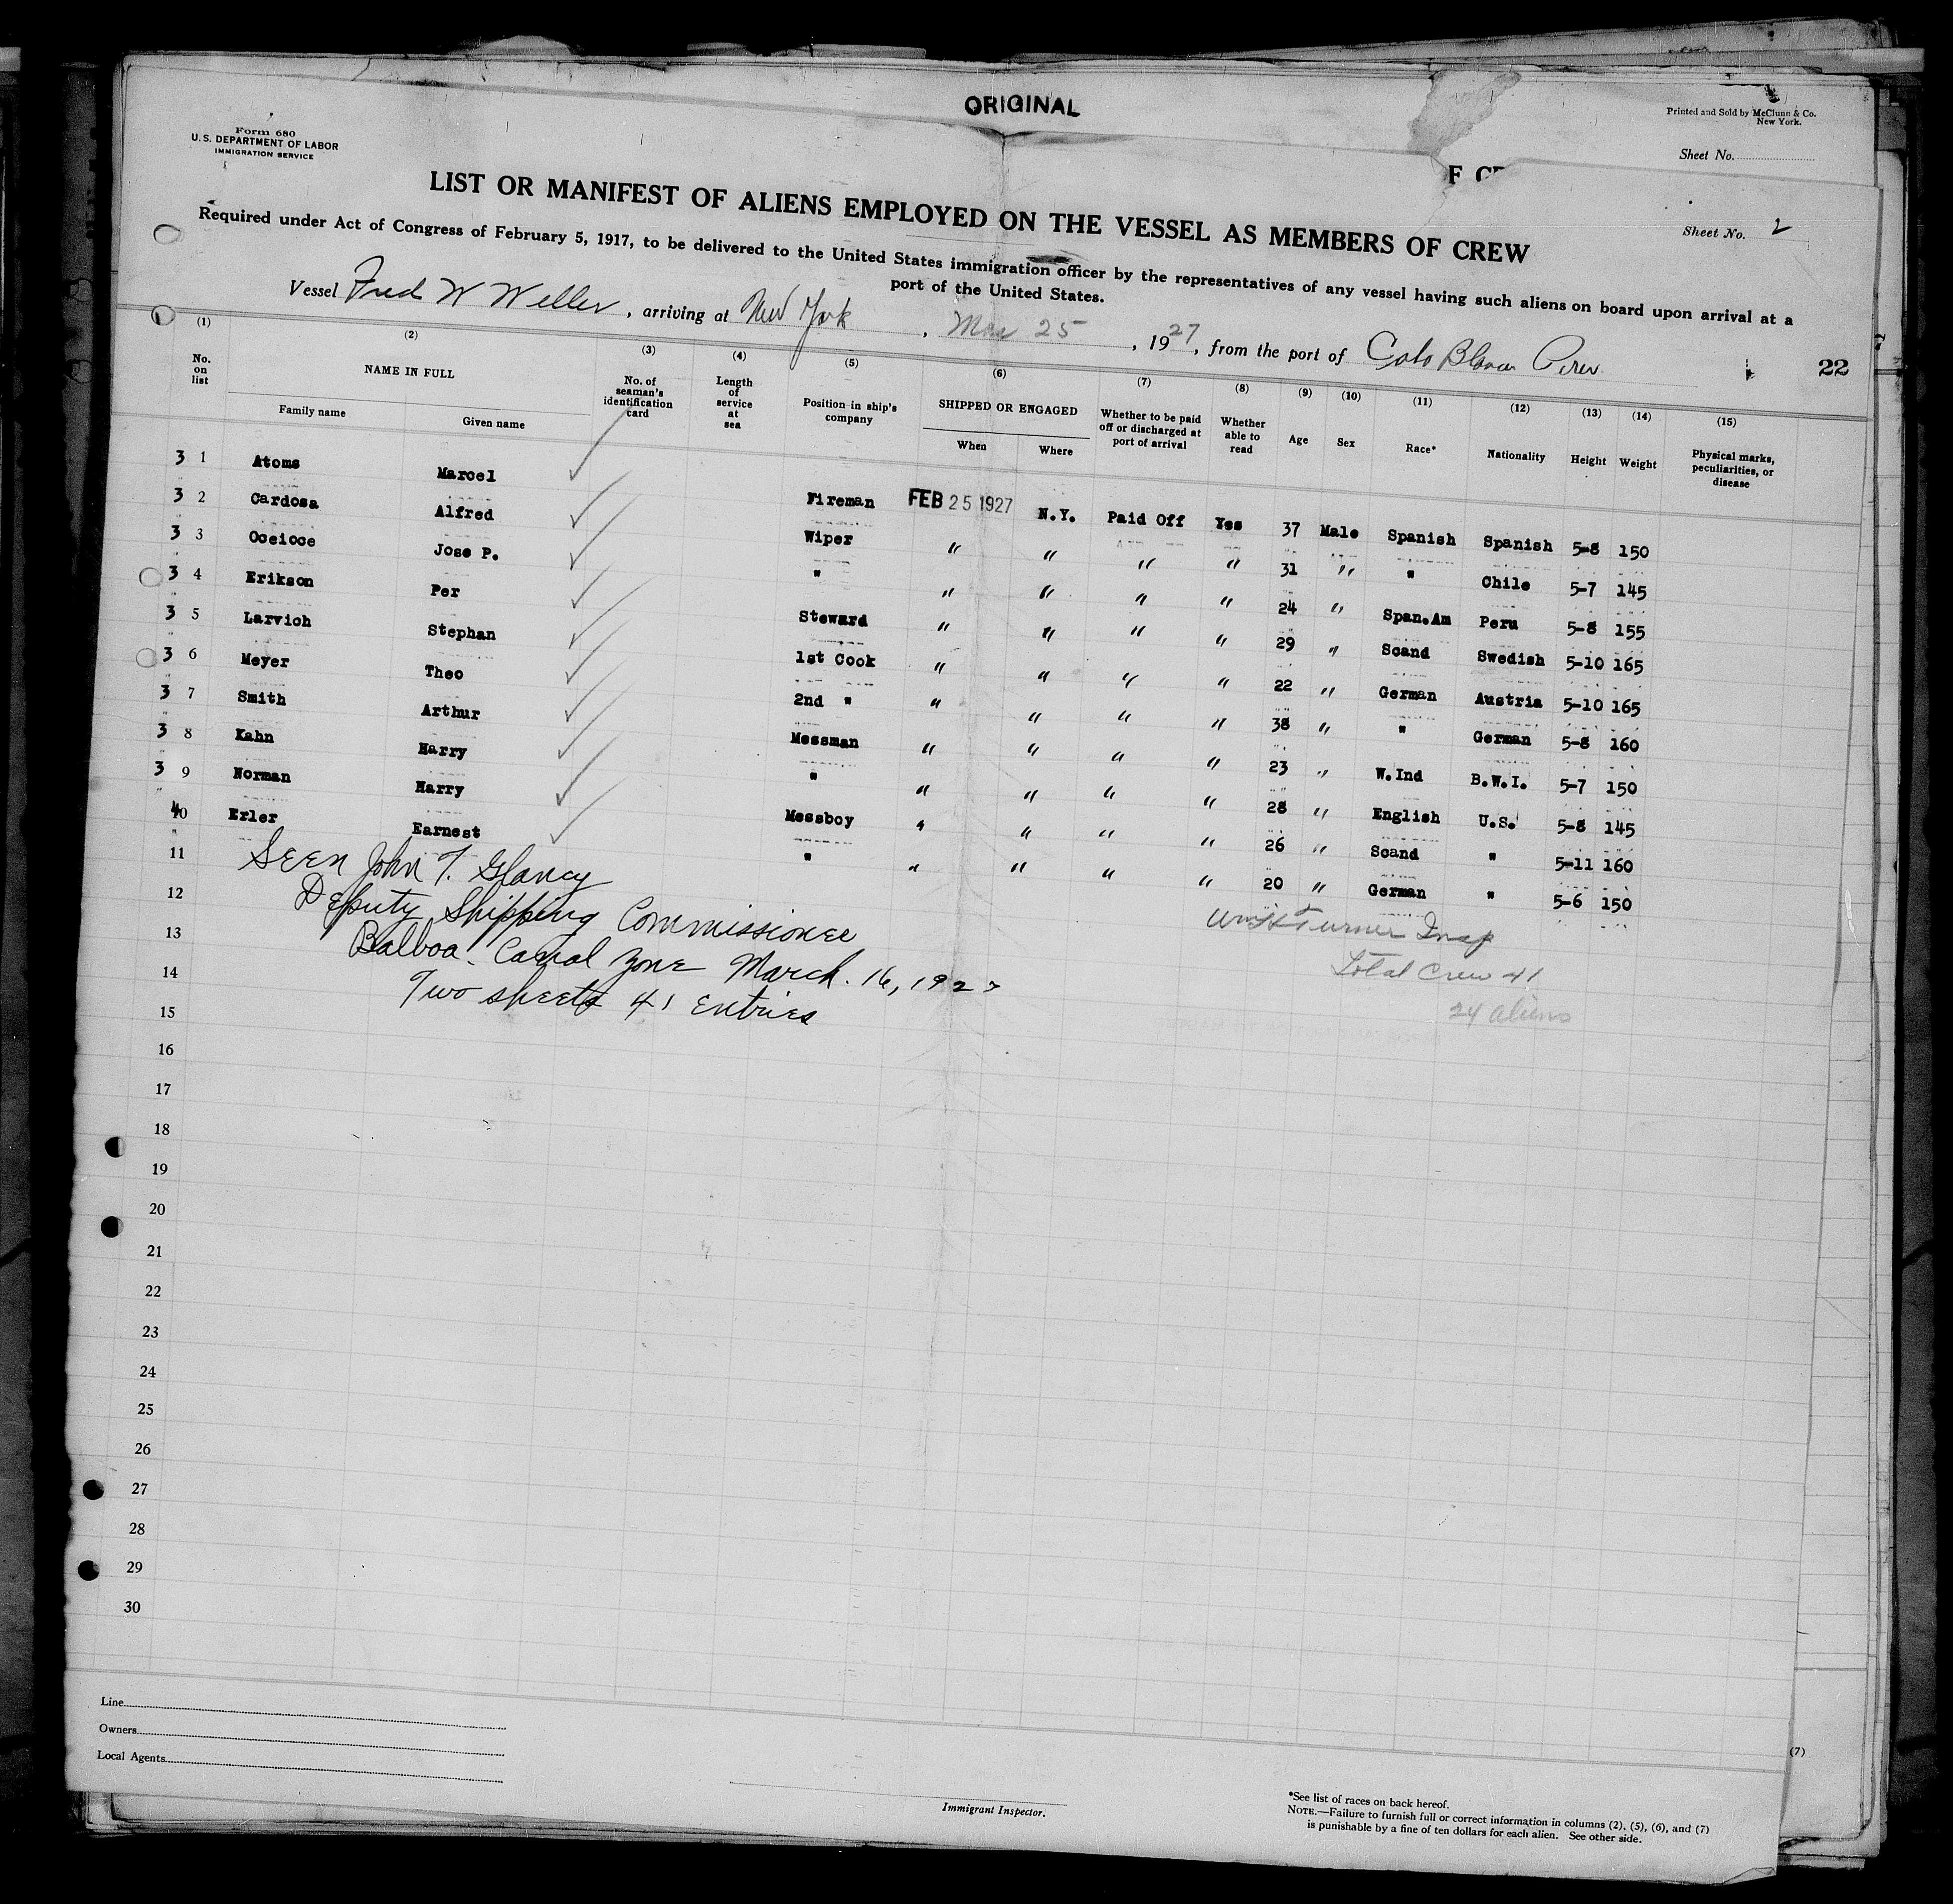 ORIGINAL
Form 680
U. S. DEPARTMENT OF LABOR
IMMIGRATION SERVICE
Printed and Sold by McClunn & Co.
New York.
Sheet No.
F CR
Sheet No. 2
LIST OR MANIFEST OF ALIENS EMPLOYED ON THE VESSEL AS MEMBERS OF CREW
Required under Act of Congress of February 5, 1917, to be delivered to the United States immigration officer by the representatives of any vessel having such aliens on board upon arrival at a
port of the United States.
Vessel Fred W Weller, arriving at New York, Mar 25, 1927, from the port of Cabo Blanco Peru
22
(1) (2) (3) (4) (5) (6) (7) (8) (9) (10) (11) (12) (13) (14) (15)
No. on list NAME IN FULL Family name Given name No. of seaman's identification card Length of service at sea Position in ship's company SHIPPED OR ENGAGED When Where Whether to be paid off or discharged at port of arrival Whether able to read Age Sex Race* Nationality Height Weight Physical marks, peculiarities, or disease
3 1 Atoms Marcel Fireman FEB 25 1927 N.Y. Paid Off Yes 37 Male Spanish Spanish 5-8 150
3 2 Cardosa Alfred Wiper " " " " 31 " " Chile 5-7 145
3 3 Oceioce Jose P. " " " " " 24 " Span.Am Peru 5-8 155
3 4 Erikson Per Steward " " " " 29 " Scand Swedish 5-10 165
3 5 Larvich Stephan 1st Cook " " " " 22 " German Austria 5-10 165
3 6 Meyer Theo 2nd " " " " " 38 " " German 5-8 160
3 7 Smith Arthur Messman " " " " 23 " W.Ind B.W.I. 5-7 150
3 8 Kahn Harry " " " " " 28 " English U.S. 5-8 145
3 9 Norman Harry Messboy " " " " 26 " Scand " 5-11 160
40 Erler Earnest " " " " " 20 " German " 5-6 150
11
12
13
14
15
16
17
18
19
20
21
22
23
24
25
26
27
28
29
30
Seen John T. Glancy
Deputy Shipping Commissioner
Balboa. Canal Zone March. 16, 1927
Two sheets 41 Entries
Turner Insp
Total Crew 41
24 aliens
Line
Owners
Local Agents
Immigrant Inspector.
(7)
*See list of races on back hereof.
NOTE.—Failure to furnish full or correct information in columns (2), (5), (6), and (7)
is punishable by a fine of ten dollars for each alien. See other side.